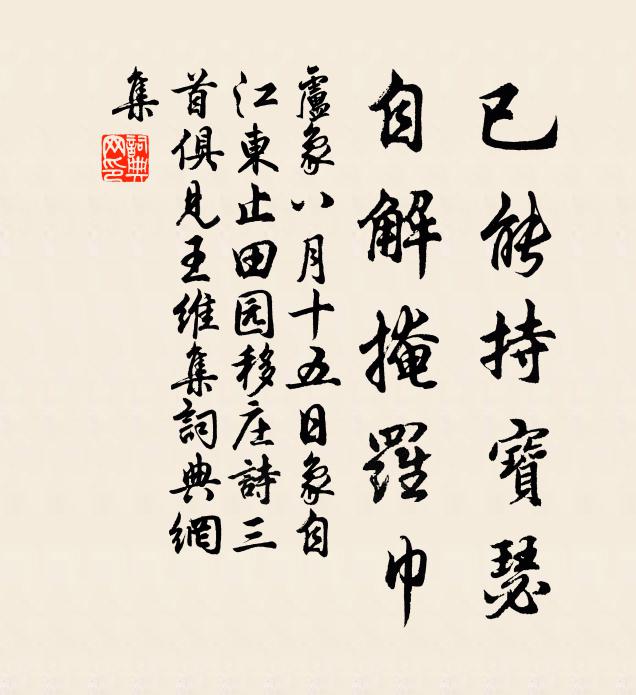 已能持寶瑟
自解掩羅巾
盧象八月十五日象自
江東止田园移庄詩三
首俱見王維集詞典網
集
詞典網印